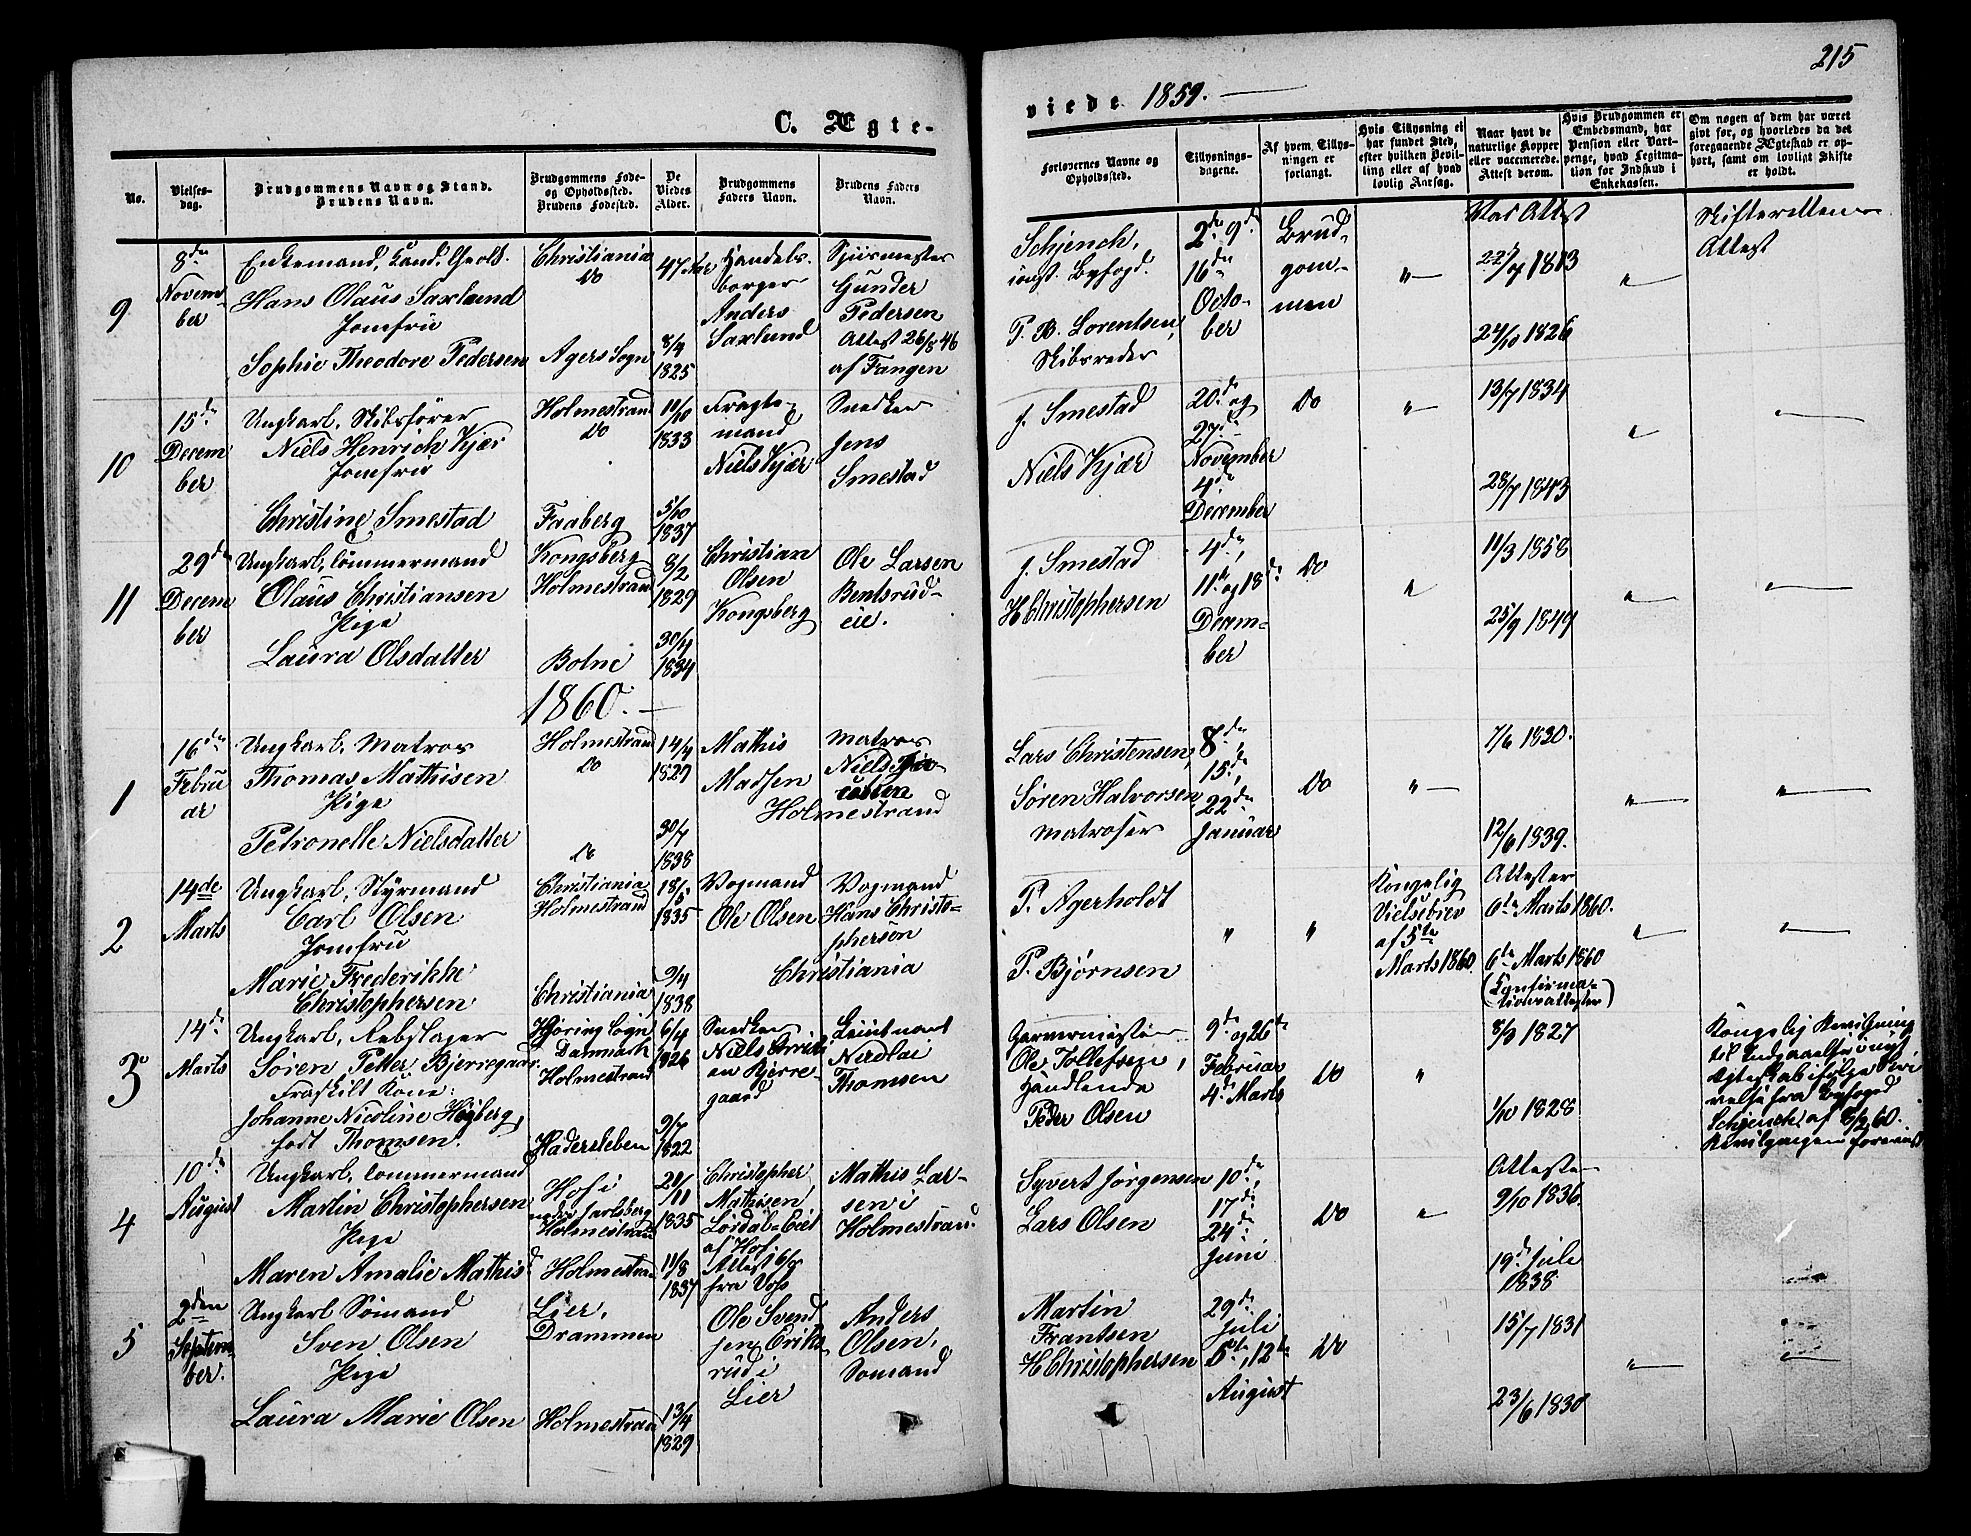 215
C. Ægte-
viede 1859.
No.
Vielses-
dag.
Brudgommens Navn og Stand.
Brudens Navn.
Brudgommens Føde-
og Opholdssted.
Brudens Fødested.
De
Viedes
Alder.
Brudgommens
Faders Navn.
Brudens Faders
Navn.
Forlovernes Navne og
Opholdssted.
Tillysnings-
dagene.
Af hvem Tillys-
ningen er
forlangt.
Hvis Tillysning ei
har fundet Sted,
efter hvilken Bevil-
ling eller af hvad
lovlig Aarsag.
Naar havt de
naturlige Kopper
eller vaccinerede.
Attest derom.
Hvis Brudgommen er
Embedsmand, har
Pension eller Vart-
penge, hvad Legitima-
tion for Indskud i
Enkekassen.
Om nogen af dem har været
givt før, og hvorledes da det
foregaaende Ægteskab er op-
hørt, samt om lovligt Skifte
er holdt.
9
8de
Novem-
ber
Enkemand, Cand. theol.
Hans Olaus Saxlund
Jomfru
Sophie Theodore Pedersen
Christiania
Do
Agers Sogn
47 Aar
8/4
1825
Handels-
borger
Anders
Saxlund
Gunder
Pedersen
Attest 26/8 46
af Fangen
Schjench,
const. Byfogd.
P. B. Lorentsen,
Skibsreder
2de 9de
16de
Octo-
ber
Brud-
gom-
men
"
Vac Attest
22/7 1813
24/10 1826
"
Skifterettens
Attest
10
15de
Decem
ber
Ungkarl, Skibsfører
Niels Henrich Kjær
Jomfru
Christine Smestad
Holmestrand
Do
Faaberg
11/10
1833
5/10
1837
Fragte-
mand
Niels Kjær
Snedker
Jens
Smestad
J. Smestad
Niels Kjær
20de og
27de
November
4de
December
Do
"
13/7 1834
28/7 1843
"
"
11
29de
Decem
ber
Ungkarl, Tømmermand
Olaus Christiansen
Pige
Laura Olsdatter
Kongsberg
Holmestrand
Botne
8/2
1829
30/4
1834
Christian
Olsen
Kongsberg
Ole Larsen
Bentsrud-
eie.
J. Smestad
H Christophersen
4de,
11te og 18de
Decem-
ber
Do
"
11/3 1858
25/9 1849
"
"
1860.
1
16de
Febru
ar
Ungkarl, Matros
Thomas Mathisen
Pige
Petronelle Nielsdatter
Holmestrand
Do
Do
14/4
1829
30/7
1838
Mathis
Madsen
Matros
Niels
Holmestrand
Lars Christensen,
Søren Halvorsen
Matroser
8de,
15de,
22de
Januar
Do
"
7/6 1830.
12/6 1839.
"
"
2
14de
Marts
Ungkarl, Styrmand
Carl Olsen
Jomfru
Marie Frederikke
Christophersen
Christiania
Holmestrand
Christiania
1835
9/4
1838
Vogmand
Ole Olsen
Vogmand
Hans Christo-
phersen
Christiania
P. Agerholdt
P. Bjørnsen
"
"
Kongelig
Vielsebrev
af 5te
Marts 1860.
Attester
6te Marts 1860.
6te Marts 1860
(Confirma-
tionsattester)
"
"
3
14de
Marts
Ungkarl, Rebslager
Søren Petter Bjerregaard
Fraskilt Kone:
Johanne Nicoline Høyberg,
født Thomsen.
Hjøring Sogn
Danmark
Holmestrand
Hadersleben
6/4
1826
9/7
1822
Snedker
Niels Christi
an Bjerre-
gaard
Lieutnant
Nicolai
Thomsen
Garvermester
Ole Tollefsen,
Handlende
Peder Olsen
9de og 26de
Februar
4de Marts
Do
"
8/9 1827
1/10 1828
Kongelig Bevilgning
til Indgaaelse i nyt
Ægteskab ifølge Skri
velse fra Byfoged
Schjench, af 8/2 60.
4
10de
August
Ungkarl, Tømmermand
Martin Christophersen
Pige
Maren Amalie Mathisd
Hof i
nedre Jarlsberg
Holmestrand
Holmestran
21/11
1835
11/8
1837
Christopher
Mathisen
af Hof.
Attest 6/8
Mathis Lar-
sen i
Holmestrand
Syvert Jørgensen
Lars Olsen
10de,
17de
24de
Juni
Do
"
Attester
9/10 1836.
19de Juli
1838
5
2den
Septem-
ber.
Ungkarl Sømand
Sven Olsen
Pige
Laura Marie Olsen
Lier,
Drammen
Holmestran
13/4
1829
Ole Svend
sen Eriks-
rud i
Lier
Anders
Olsen,
Sømand
Martin
Frantsen
H Christophersen
29de
Juli
5te, 12te
August
Do
15/7 1831
23/6 1830
"
"